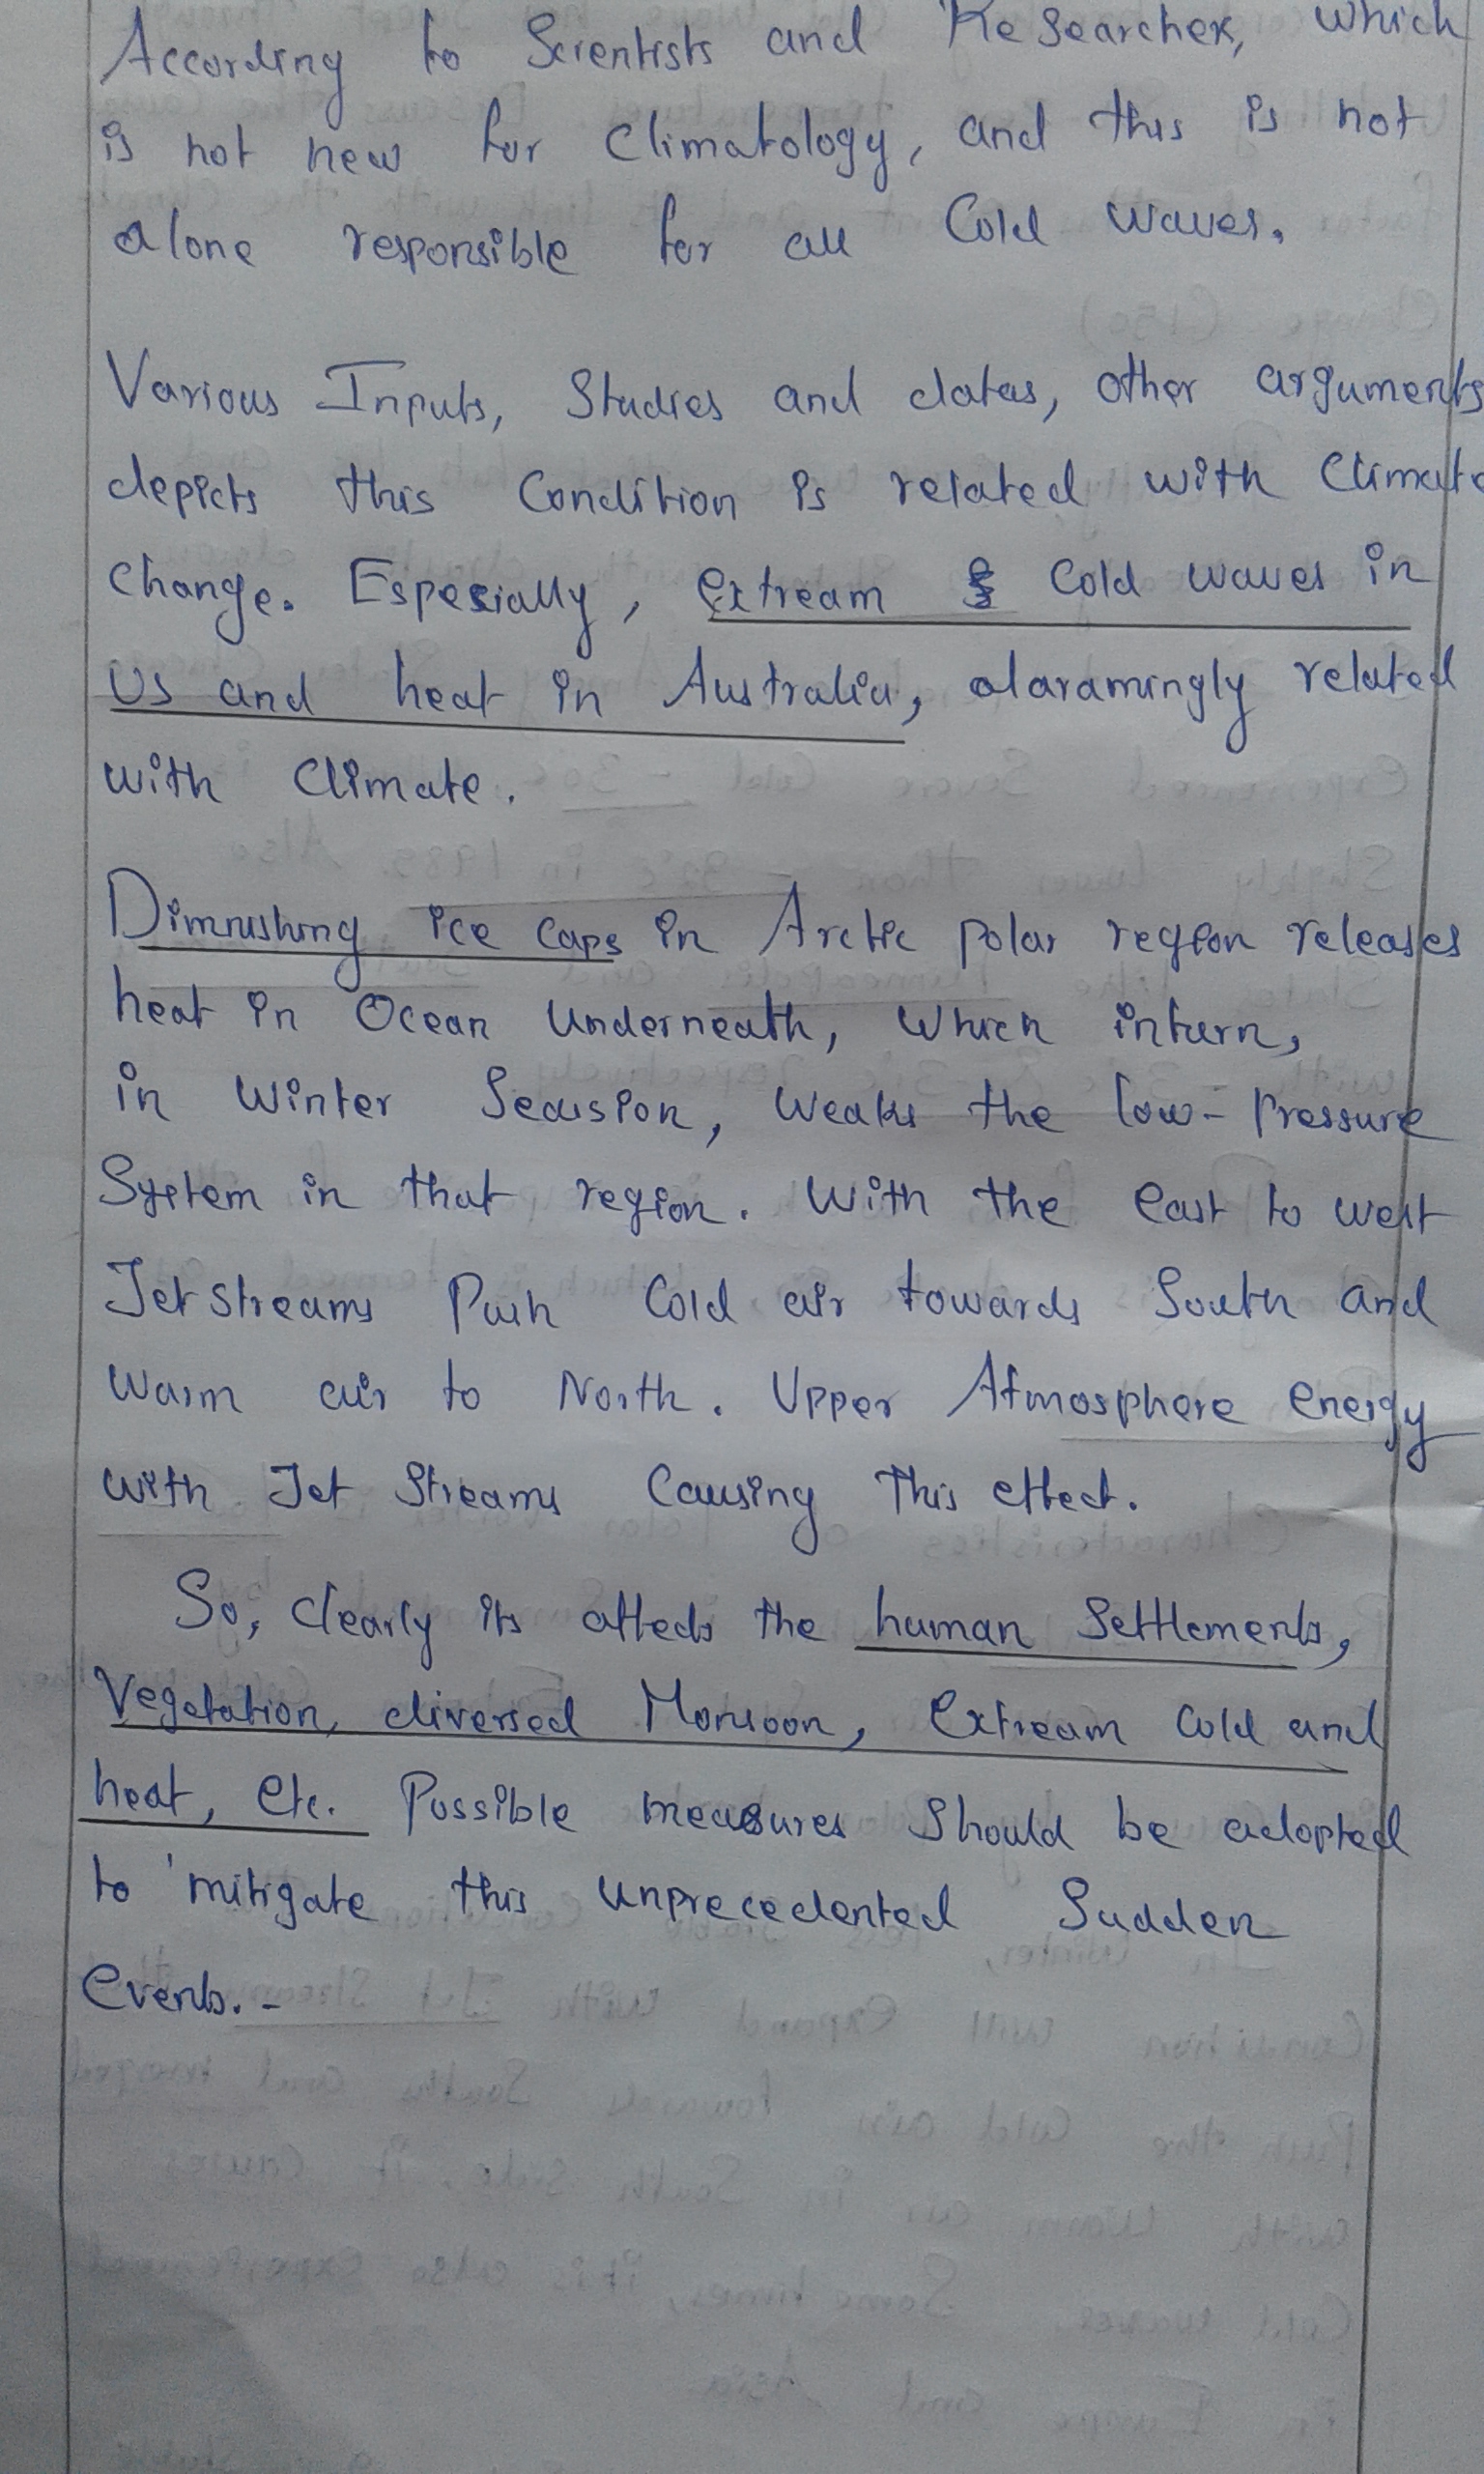 According to Scientists and Researcher, which
is not new for Climatology, and this is not
alone responsible for all Cold waves.
Various Inputs, Studies and datas, other arguments
depicts this Condition is related with Climate
change. Especially, extream Cold waves in
US and heat in Australia, alaramingly related
with Climate.
Diminishing ice caps in Arctic polar region releases
heat in Ocean Underneath, which inturn,
in Winter Seasion, weaks the low-Pressure
System in that region. With the east to west
Jet streams Push Cold air towards South and
warm air to North. Upper Atmosphere energy
with Jet Streams Causing this effect.
So, clearly its affects the human Settlements,
Vegetation, diversed Monsoon, Extream Cold and
heat, etc. Possible measures Should be adopted
to mitigate this unprecedented Sudden
Events.-